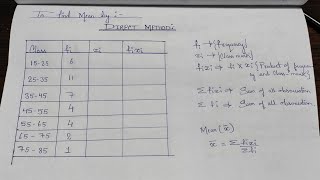 To find Mean by :-
DIRECT METHOD:
Class fi xi fixi
15-25 6
25-35 11
35-45 7
45-55 4
55-65 4
65-75 2
75-85 1
fi → (frequency)
xi → (class mark)
fixi → fi × xi (Product of frequency and class mark)
Σ fixi ⇒ Sum of all observation
Σ fi ⇒ Sum of all observations
Mean (x̄)
x̄ = Σ fixi / Σ fi